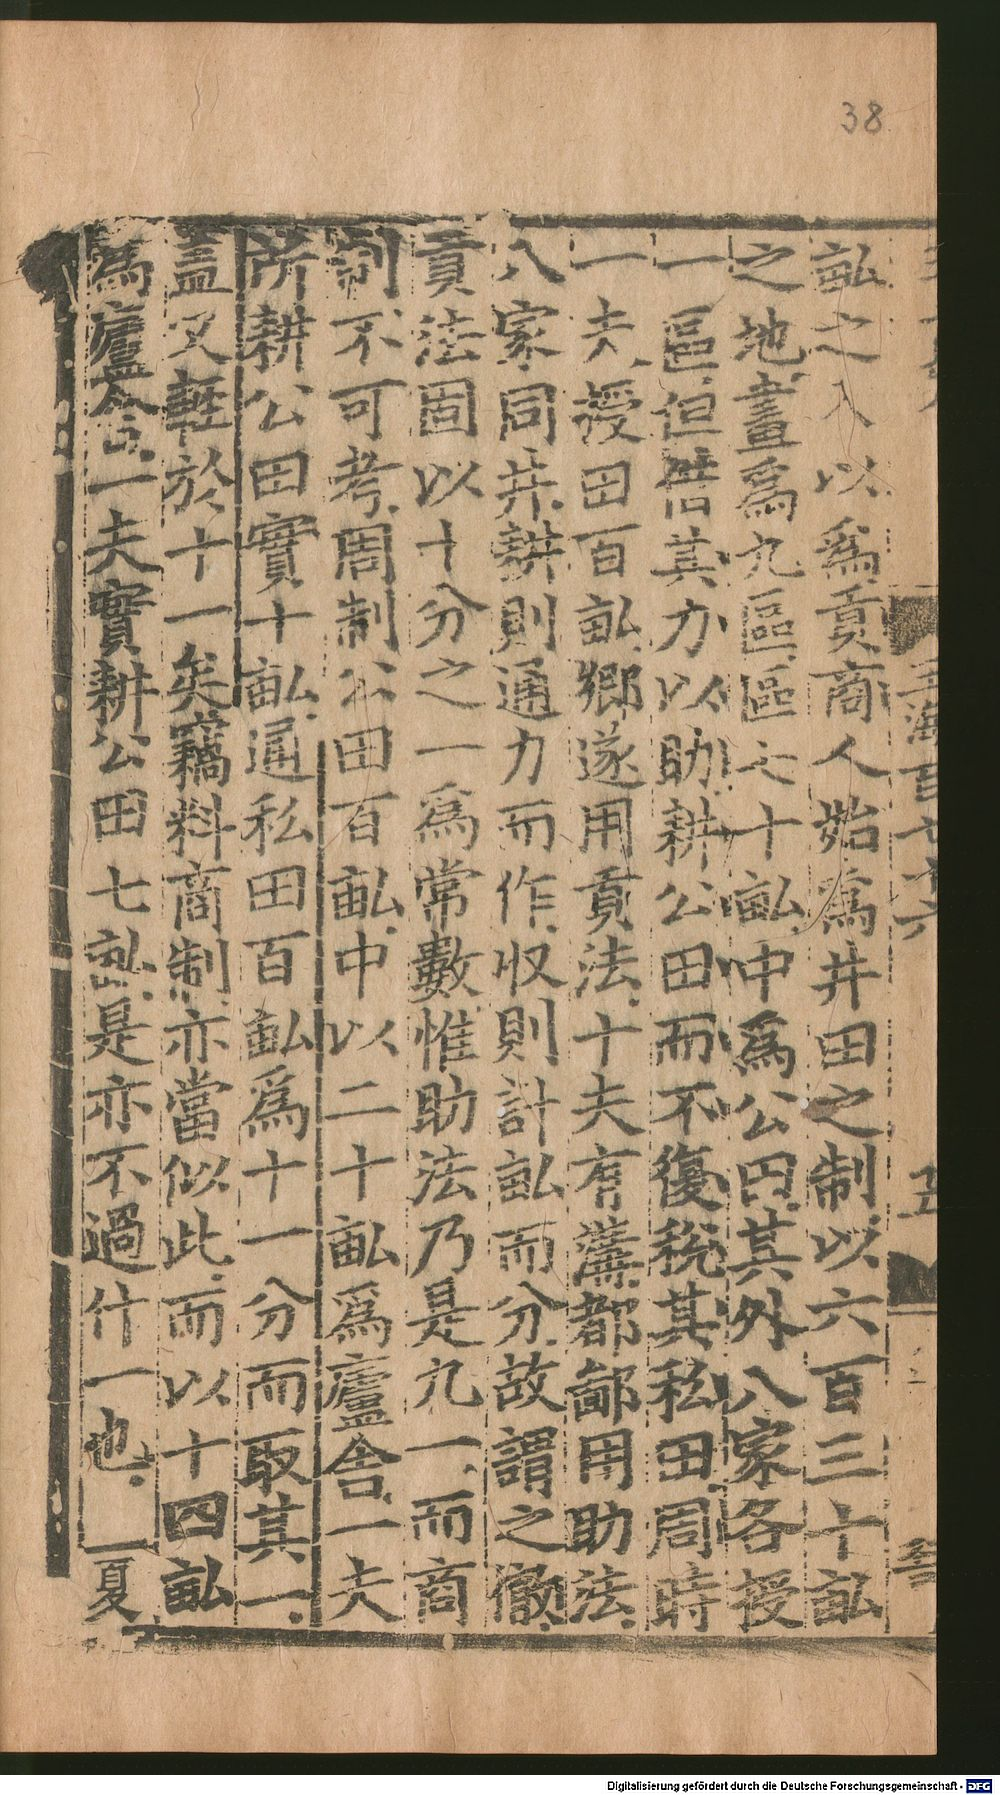 38
玉海百七十六
五
畝之入以爲貢商人始爲井田之制以六百三十畝
之地畫爲九區區七十畝中爲公田其外八家各授
一區但借其力以助耕公田而不復稅其私田周時
一夫授田百畝鄉遂用貢法十夫有溝都鄙用助法
八家同井耕則通力而作收則計畝而分故謂之徹
貢法固以十分之一爲常數惟助法乃是九一而商
制不可考周制公田百畝中以二十畝爲廬舍一夫
所耕公田實十畝通私田百畝爲十一分而取其一
蓋又輕於十一矣竊料商制亦當似此而以十四畝
爲廬舍一夫實耕公田七畝是亦不過什一也 夏
Digitalisierung gefördert durch die Deutsche Forschungsgemeinschaft - DFG